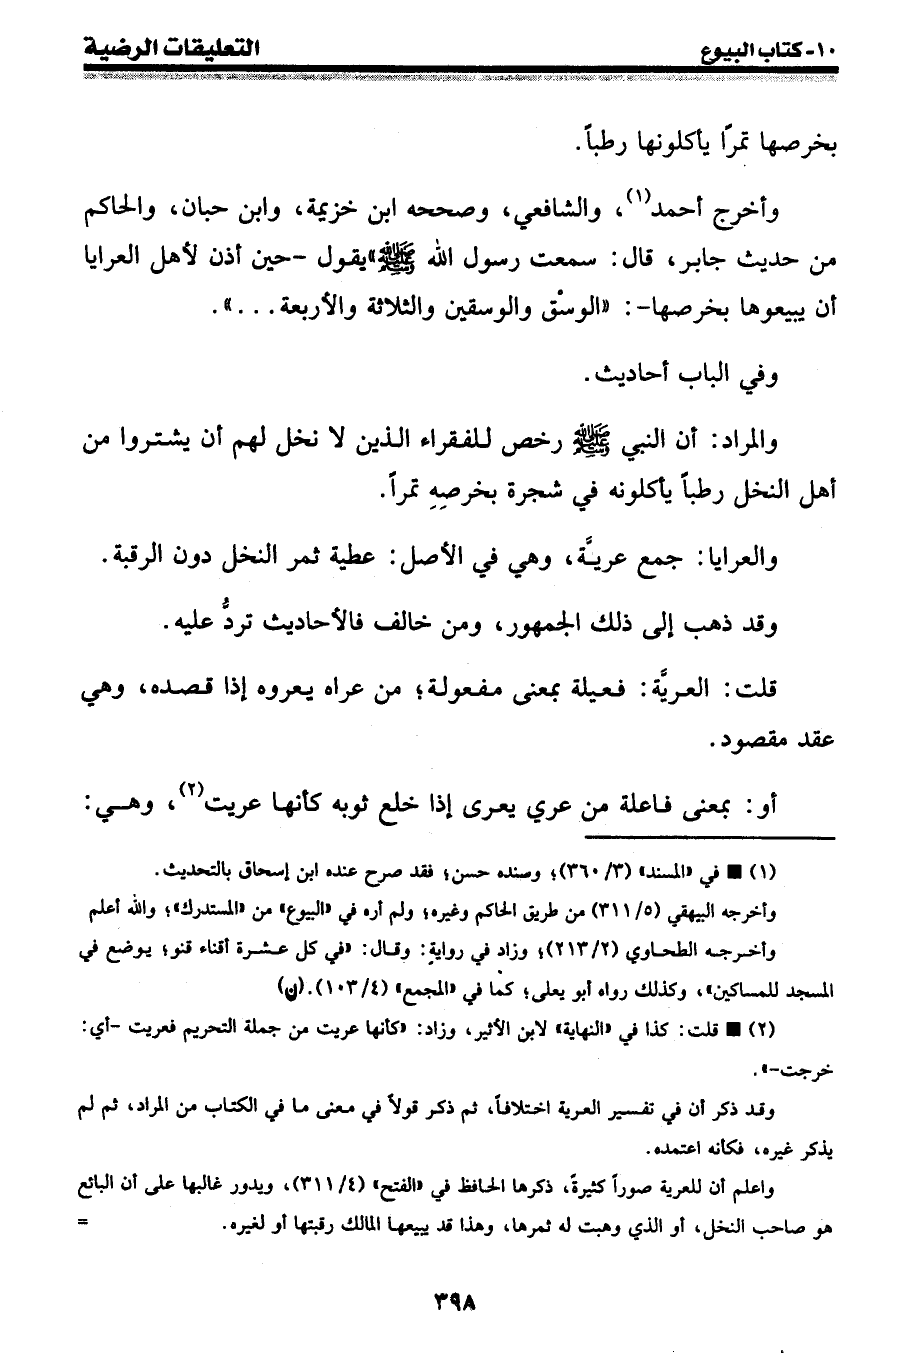 ١٠- كتاب البيوع
التعليقات الرضية
بخرصها تمراً يأكلونها رطباً.
وأخرج أحمد(١)، والشافعي، وصححه ابن خزيمة، وابن حبان، والحاكم
من حديث جابر، قال: سمعت رسول الله ﷺ»يقول -حين أذن لأهل العرايا
أن يبيعوها بخرصها-: «الوسْق والوسقين والثلاثة والأربعة...».
وفي الباب أحاديث.
والمراد: أن النبي ﷺ رخص للفقراء الذين لا نخل لهم أن يشتروا من
أهل النخل رطباً يأكلونه في شجرة بخرصِهِ تمراً.
والعرايا: جمع عريَّة، وهي في الأصل: عطية ثمر النخل دون الرقبة.
وقد ذهب إلى ذلك الجمهور، ومن خالف فالأحاديث تردُّ عليه.
قلت: العريَّة: فعيلة بمعنى مفعولة؛ من عراه يعروه إذا قصده، وهي
عقد مقصود.
أو: بمعنى فاعلة من عري يعرى إذا خلع ثوبه كأنها عريت(٢)، وهي:
(١) ■ في «المسند» (٣/ ٣٦٠)؛ وسنده حسن؛ فقد صرح عنده ابن إسحاق بالتحديث.
وأخرجه البيهقي (٥/ ٣١١) من طريق الحاكم وغيره؛ ولم أره في «البيوع» من «المستدرك»؛ والله أعلم
وأخرجه الطحاوي (٢/ ٢١٣)؛ وزاد في رواية: وقال: «في كل عشرة أقناء قنو؛ يوضع في
المسجد للمساكين»، وكذلك رواه أبو يعلى؛ كما في «المجمع» (٤/ ١٠٣).(ن)
(٢) ■ قلت: كذا في «النهاية» لابن الأثير، وزاد: «كأنها عريت من جملة التحريم فعريت -أي:
خرجت-».
وقد ذكر أن في تفسير العرية اختلافاً، ثم ذكر قولاً في معنى ما في الكتاب من المراد، ثم لم
يذكر غيره، فكأنه اعتمده.
واعلم أن للعرية صوراً كثيرةً، ذكرها الحافظ في «الفتح» (٤/ ٣١١)، ويدور غالبها على أن البائع
هو صاحب النخل، أو الذي وهبت له ثمرها، وهذا قد يبيعها المالك رقبتها أو لغيره. =
٣٩٨